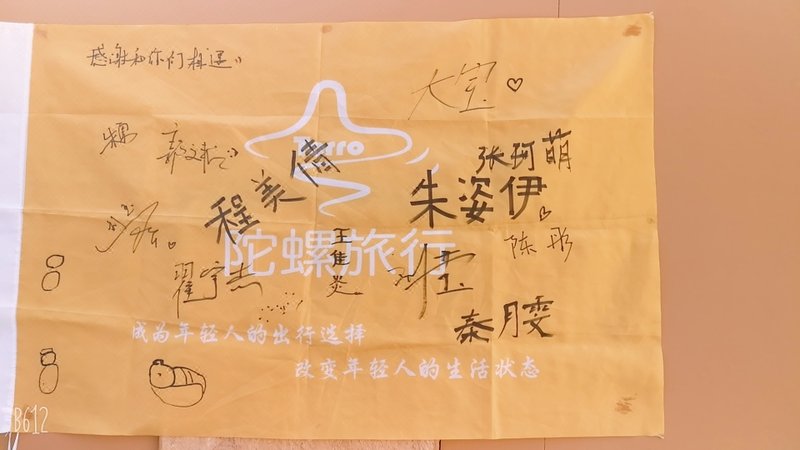 感谢和你们相遇
大宝
Torro
程美倩
张珂萌
朱姿伊
陈彤
陀螺旅行
王佳炎
翟宇杰
秦月雯
成为年轻人的出行选择
改变年轻人的生活状态
B612